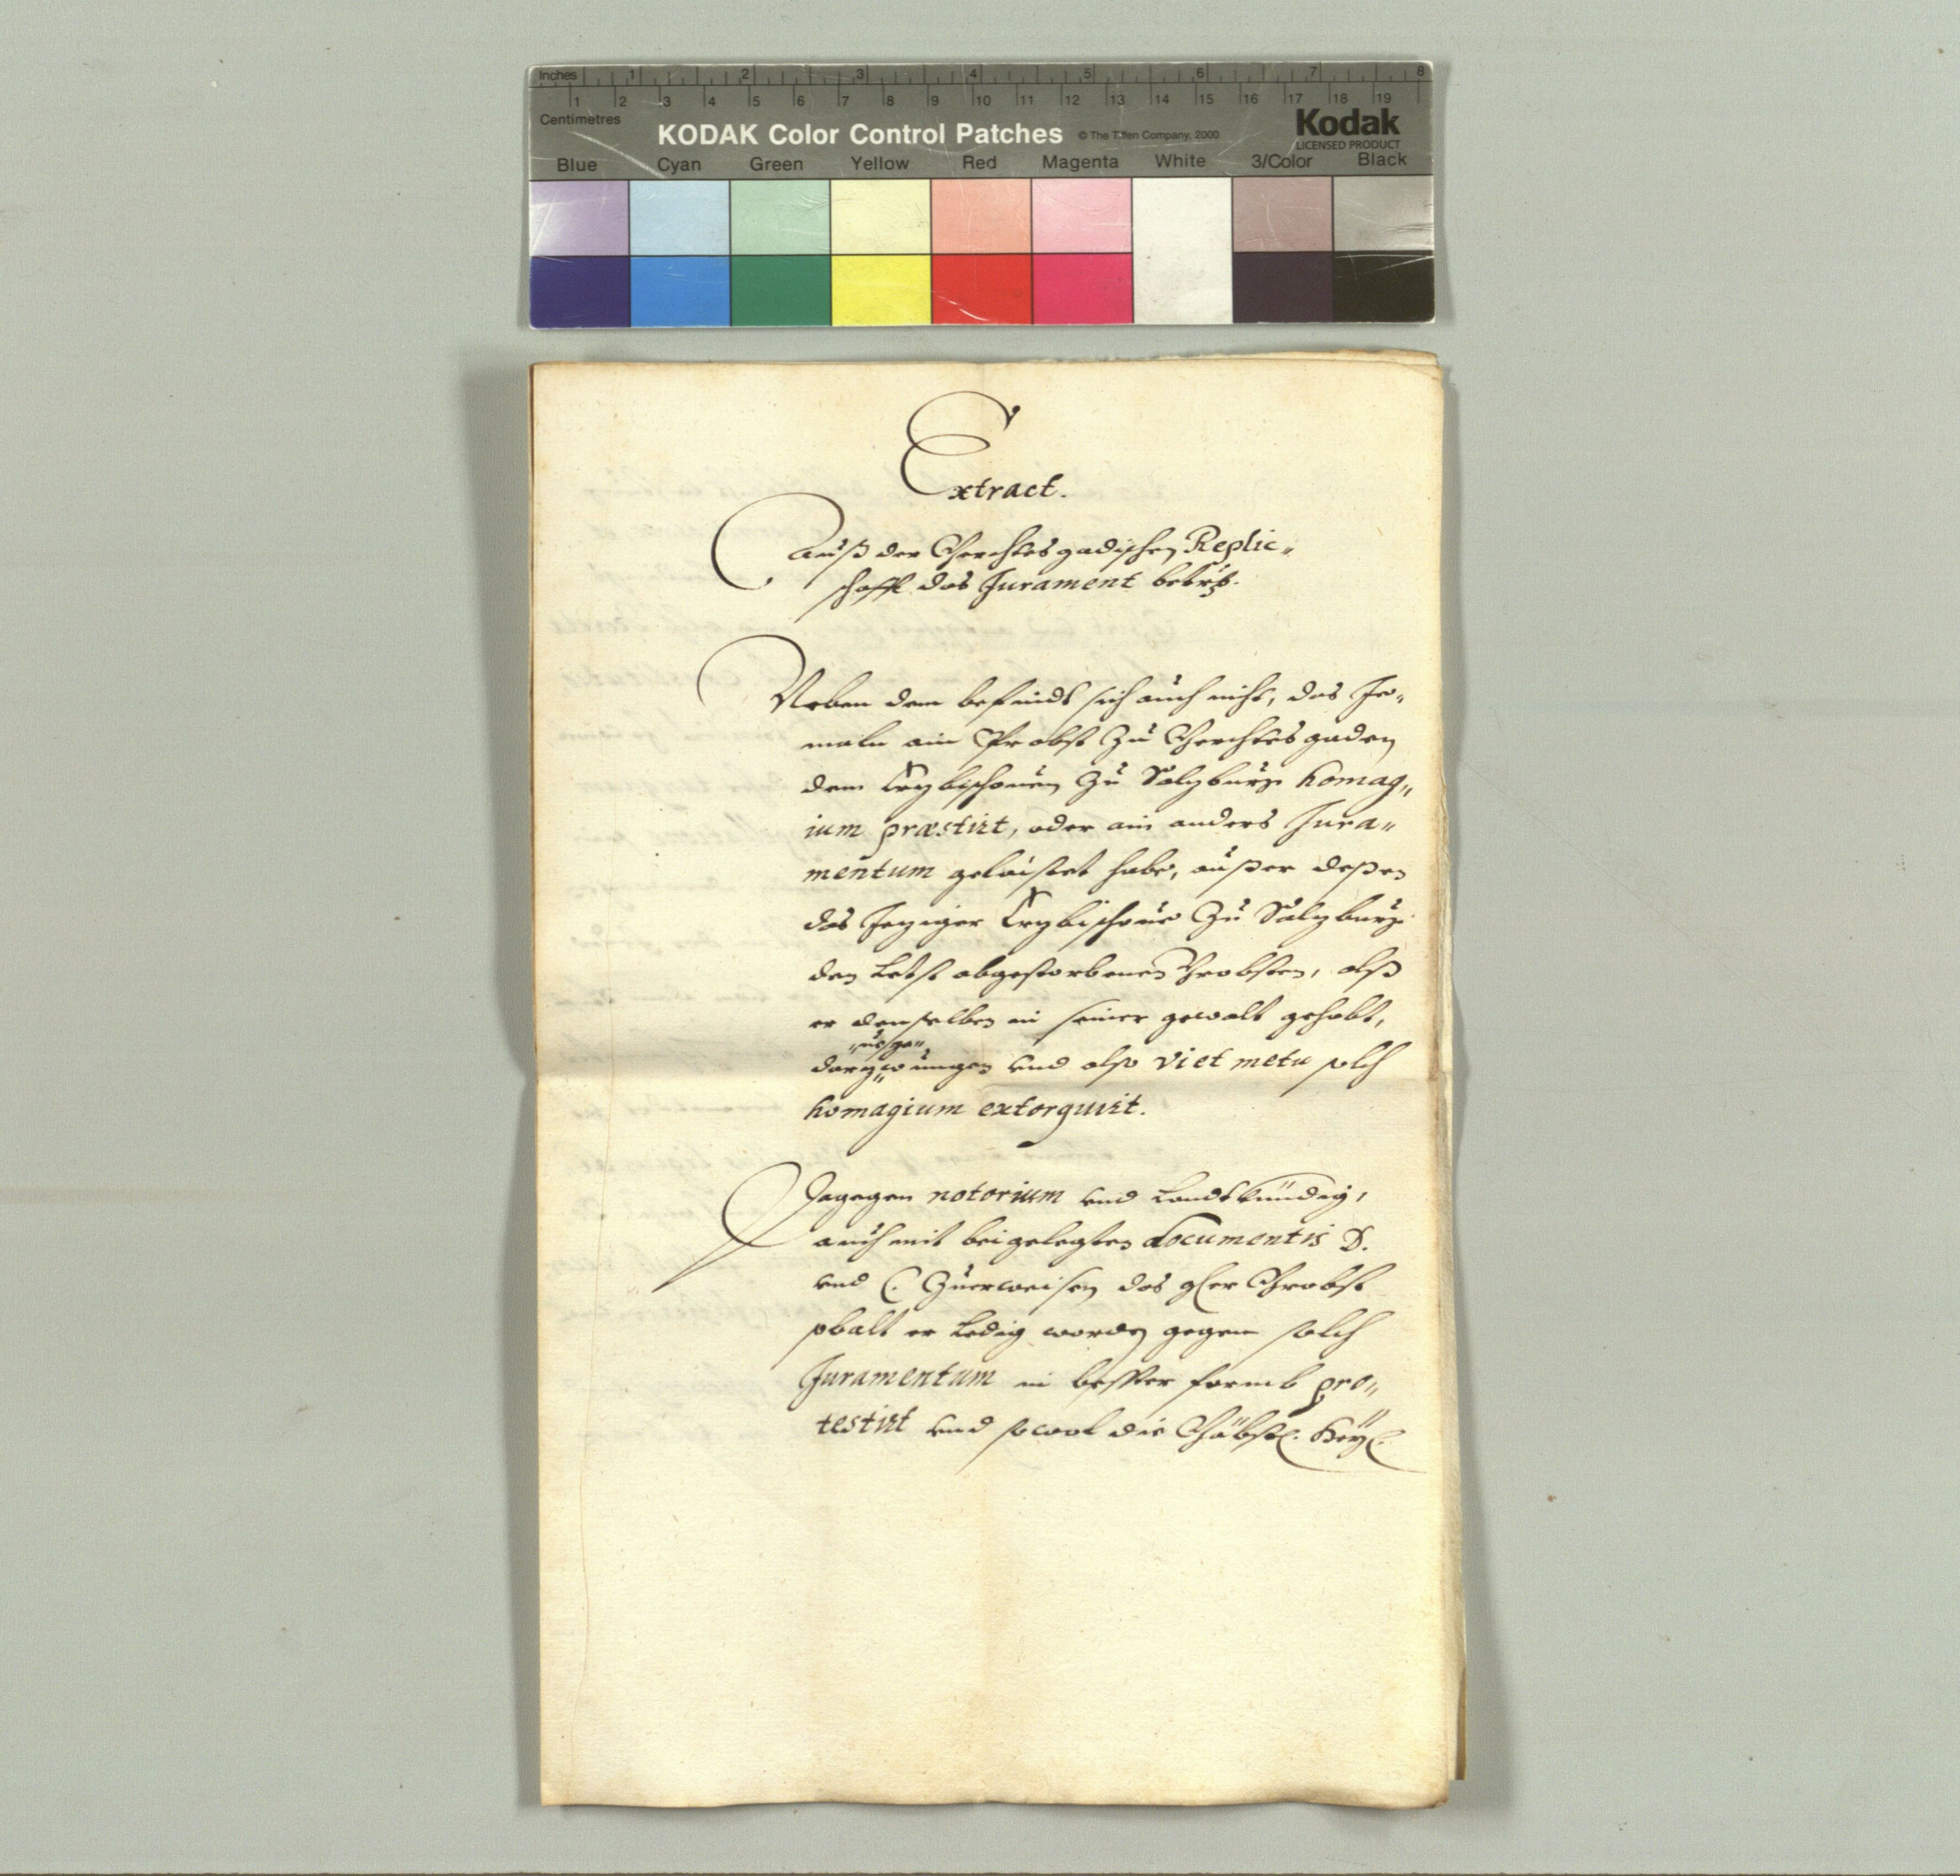 Inches 1 2 3 4 5 6 7 8
1 2 3 4 5 6 7 8 9 10 11 12 13 14 15 16 17 18 19
Centimetres
KODAK Color Control Patches © The Tiffen Company, 2000 Kodak
LICENSED PRODUCT
Blue Cyan Green Yellow Red Magenta White 3/Color Black
Extract.
Auß der Berchtesgadischen Replic„
schrifft das Jurament betr.
Neben dem befindt sich auch nicht, das Je„
maln ain Probst zu Berchtesgaden
dem Erzbischouen zu Salzburg homag„
ium præstirt, oder ain anders Jura„
mentum gelaistet habe, außer deßen
das Jeziger Erzbischoue zu Salzburg
den Letst abgestorbenen Probsten, alß
er denselben in seiner gewalt gehabt,
darzue gezwungen vnd also vi et metu solch
homagium extorquirt.
Dagegen notorium vnd Landtkündig,
auch mit beigelegten documentis B.
vnd C. Zuerweisen das Probst
sobalt er Ledig worden gegen solch
Juramentum in bester formb pro„
testirt vnd sowol die Päbstl. Keyl.